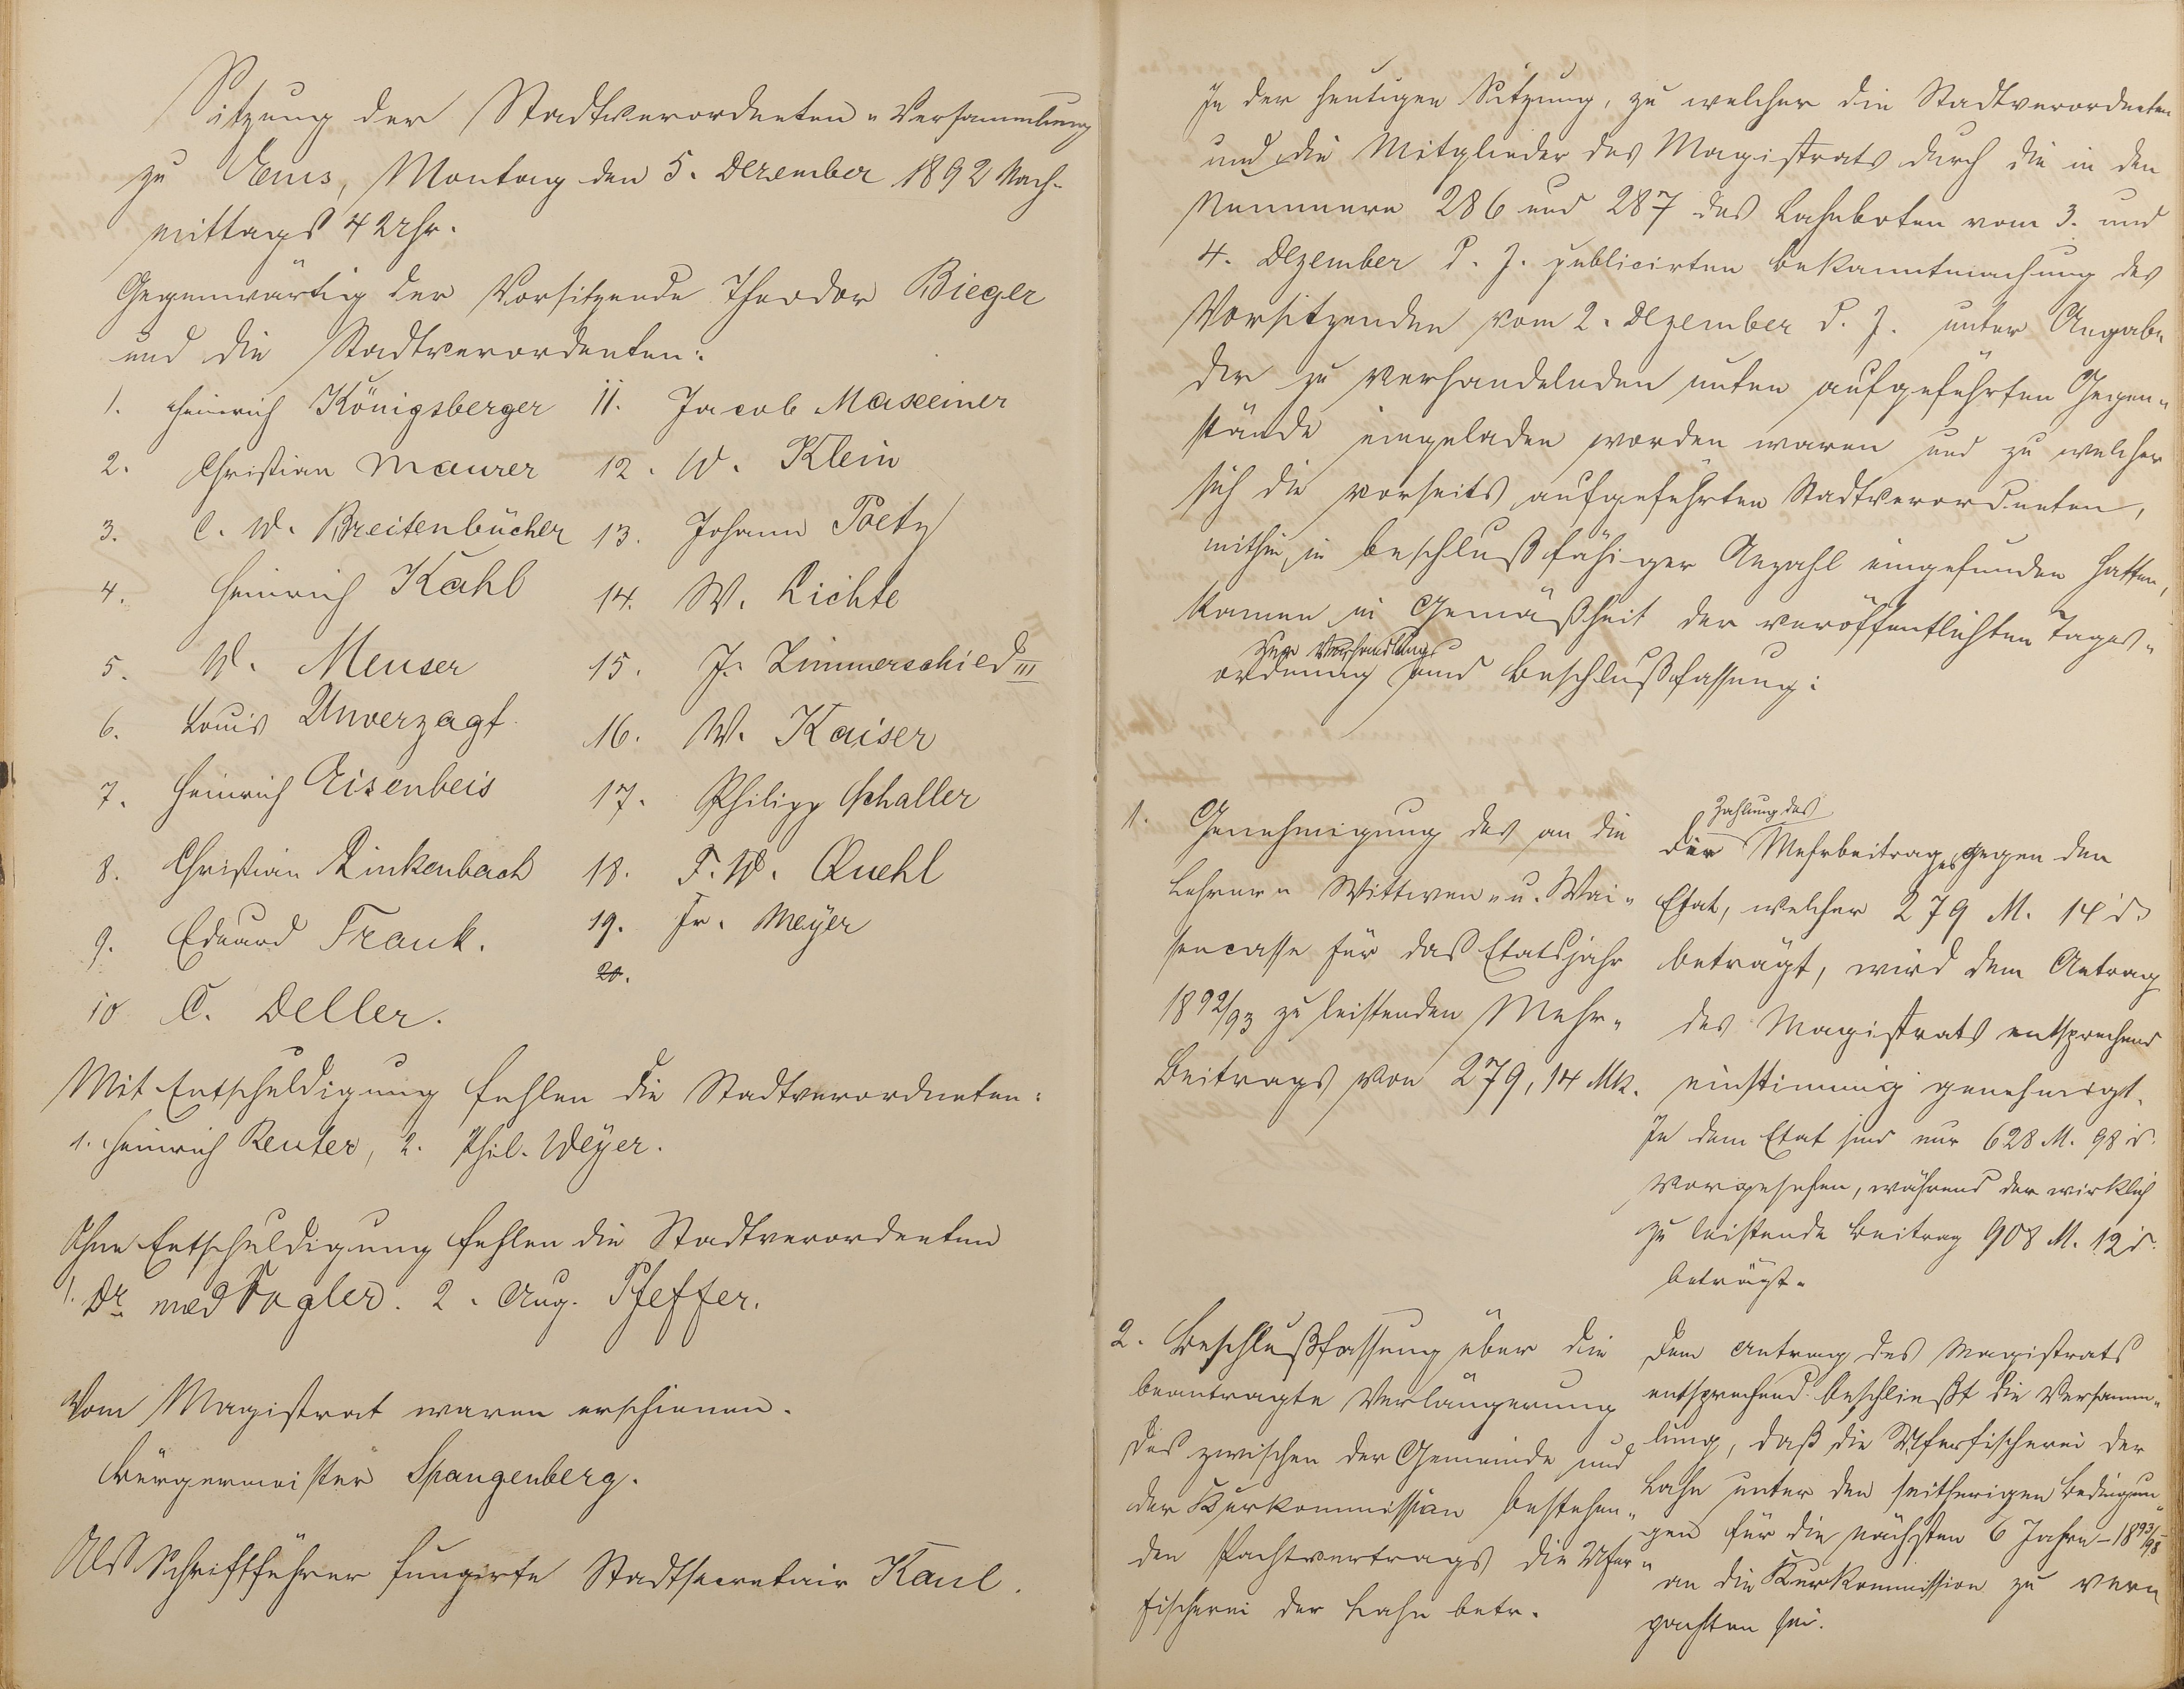 Sitzung der Stadtverordneten-Versammlung
zu Ems, Montag den 5. Dezember 1892 Nach-
mittags 4 Uhr.
Gegenwärtig der Vorsitzende Theodor Bieger
und die Stadtverordneten:
1. Heinrich Königsberger
2. Christian Maurer
3. C. W. Breitenbücher
4. Heinrich Kahl
5. W. Meuser
6. Louis Unverzagt
7. Heinrich Eisenbeis
8. Christian Linkenbach
9. Eduard Frank.
10 C. Deller.
11. Jacob Maxeiner
12. W. Klein
13. Johann Poetz
14. W. Lichte
15. J. Zimmerschied III
16. W. Kaiser
17. Philipp Schaller
18. F. W. Quehl
19. Fr. Meyer
20.
Mit Entschuldigung fehlen die Stadtverordneten:
1. Heinrich Reuter, 2. Phil. Weyer.
Ohne Entschuldigung fehlen die Stadtverordneten
1. Dr med Vogler. 2. Aug. Pfeffer.
Vom Magistrat waren erschienen.
Bürgermeister Spangenberg.
Als Schriftführer fungirte Stadtsecretair Kaul.
In der heutigen Sitzung, zu welcher die Stadtverordneten
und die Mitglieder des Magistrats durch die in den
Nummern 286 und 287 des Lahnboten vom 3. und
4. Dezember d. J. publicirten Bekanntmachung des
Vorsitzenden vom 2. Dezember d. J. unter Angabe
der zu verhandelnden unten aufgeführten Gegen-
stände eingeladen worden waren und zu welcher
sich die vorseits aufgeführten Stadtverordneten,
mithin in beschlußfähiger Anzahl eingefunden hatten,
kamen in Gemäßheit der veröffentlichten Tages-
zur Verhandlung
ordnung und Beschlußfassung:
1. Genehmigung des an die
Lehrer-Wittwen- u. Wai-
sencasse für das Etatsjahr
1892/93 zu leistenden Mehr-
Beitrags von 279,14 Mk.
Zahlung des
Die Mehrbeitrages gegen den
Etat, welcher 279 M. 14 d.
beträgt, wird dem Antrag
des Magistrats entsprechend
einstimmig genehmigt.
In dem Etat sind nur 628 M. 98 d.
vorgesehen, während der wirklich
zu leistende Beitrag 908 M. 12 d.
beträgt.
2. Beschlußfassung über die
beantragte Verlängerung
des zwischen der Gemeinde und
der Kurkommission bestehen-
den Pachtvertrags die Ufer-
fischerei der Lahn betr.
Dem Antrag des Magistrats
entsprechend beschließt die Versamm-
lung, daß die Uferfischerei der
Lahn unter den seitherigen Bedingun-
gen für die nächsten 6 Jahre - 1893/98
an die Kurkommission zu ver-
pachten sei.